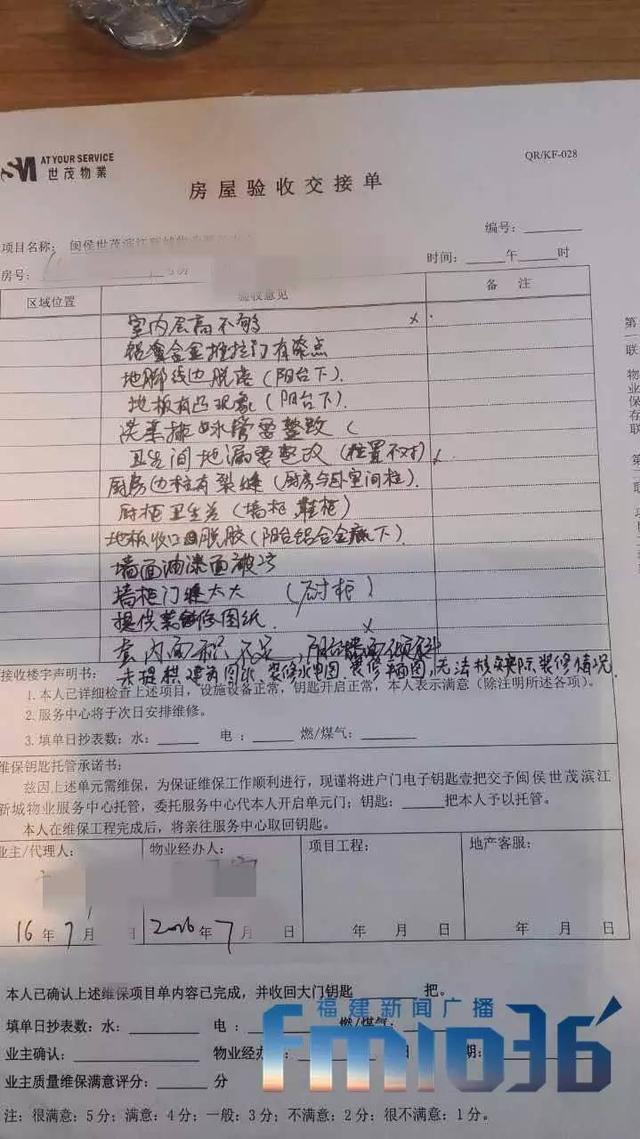 SM AT YOUR SERVICE
世茂物業
QR/KF-028
房屋验收交接单
编号：
项目名称：闽侯世茂滨江新城
时间：____午____时
房号：
区域位置 验收意见 备 注
室内层高不够 x
铝合金推拉门有
地脚线边脱落（阳台下）.
地板有凸现象（阳台下）.
洗 管要整改（
卫生间地漏要整改（位置不对）
厨房边柱有裂缝（厨房与卧室间柱）.
厨柜卫生差（墙柜，鞋柜）
地板收口脱胶（阳台铝合金底下）.
墙面油漆面破
墙柜门缝太大 （厨柜）
提供装修图纸. x
室内面积不足，阳台墙面倾斜
未提供建筑图纸、装修水电图、装修图，无法核实实际装修情况
接收楼宇声明书：
1. 本人已详细检查上述项目，设施设备正常，钥匙开启正常，本人表示满意（除注明所述各项）。
2.服务中心将于次日安排维修。
3. 填单日抄表数：水：____ 电 ：____ 燃/煤气：____
维保钥匙托管承诺书：
兹因上述单元需维保，为保证维保工作顺利进行，现谨将进户门电子钥匙壹把交予闽侯世茂滨江
新城物业服务中心托管，委托服务中心代本人开启单元门；钥匙：____把本人予以托管。
本人在维保工程完成后，将亲往服务中心取回钥匙。
业主/代理人： 物业经办人： 项目工程： 地产客服：
16年7月 日 2016年7月 日 年 月 日 年 月 日
本人已确认上述维保项目单内容已完成，并收回大门钥匙 把。
填单日抄表数：水：____ 电 ：____ 燃/煤气：
业主确认：____ 物业经办 日 期：
业主质量维保满意评分：____分
注：很满意：5分；满意：4分；一般：3分；不满意：2分；很不满意：1分。
第一联 物业保存联 第
福建新闻广播
fm1036